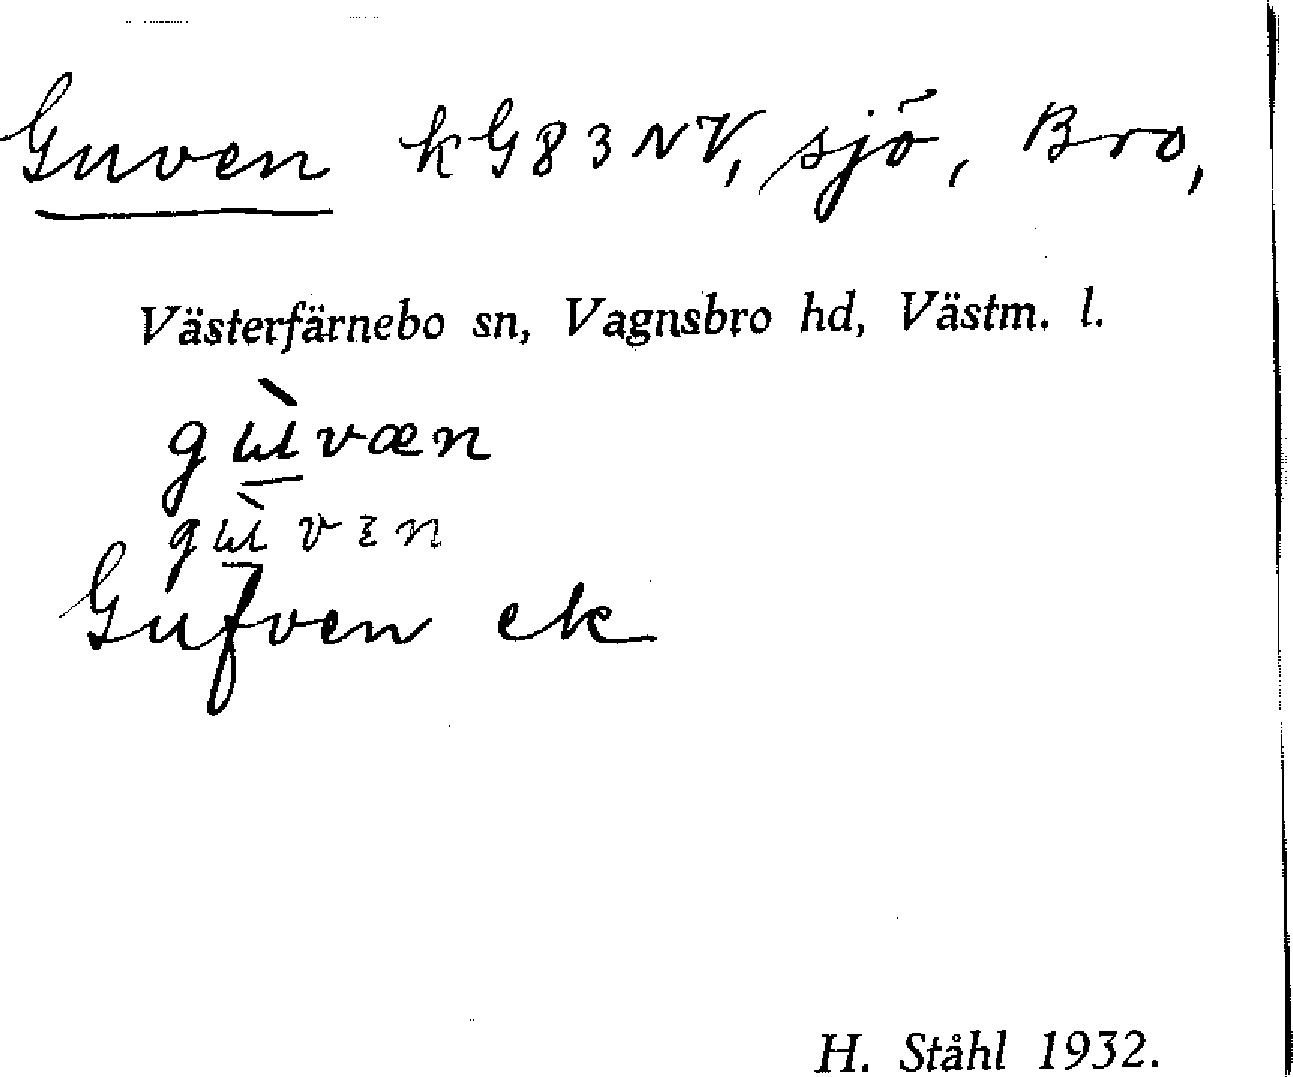 Guven kG83NV, sjö, Bro,
Västerfärnebo sn, Vagnsbro hd, Västm. l.
gɯ̲̀væn
gɯ̲̀vɛn
Gufven ek
H. Ståhl 1932.